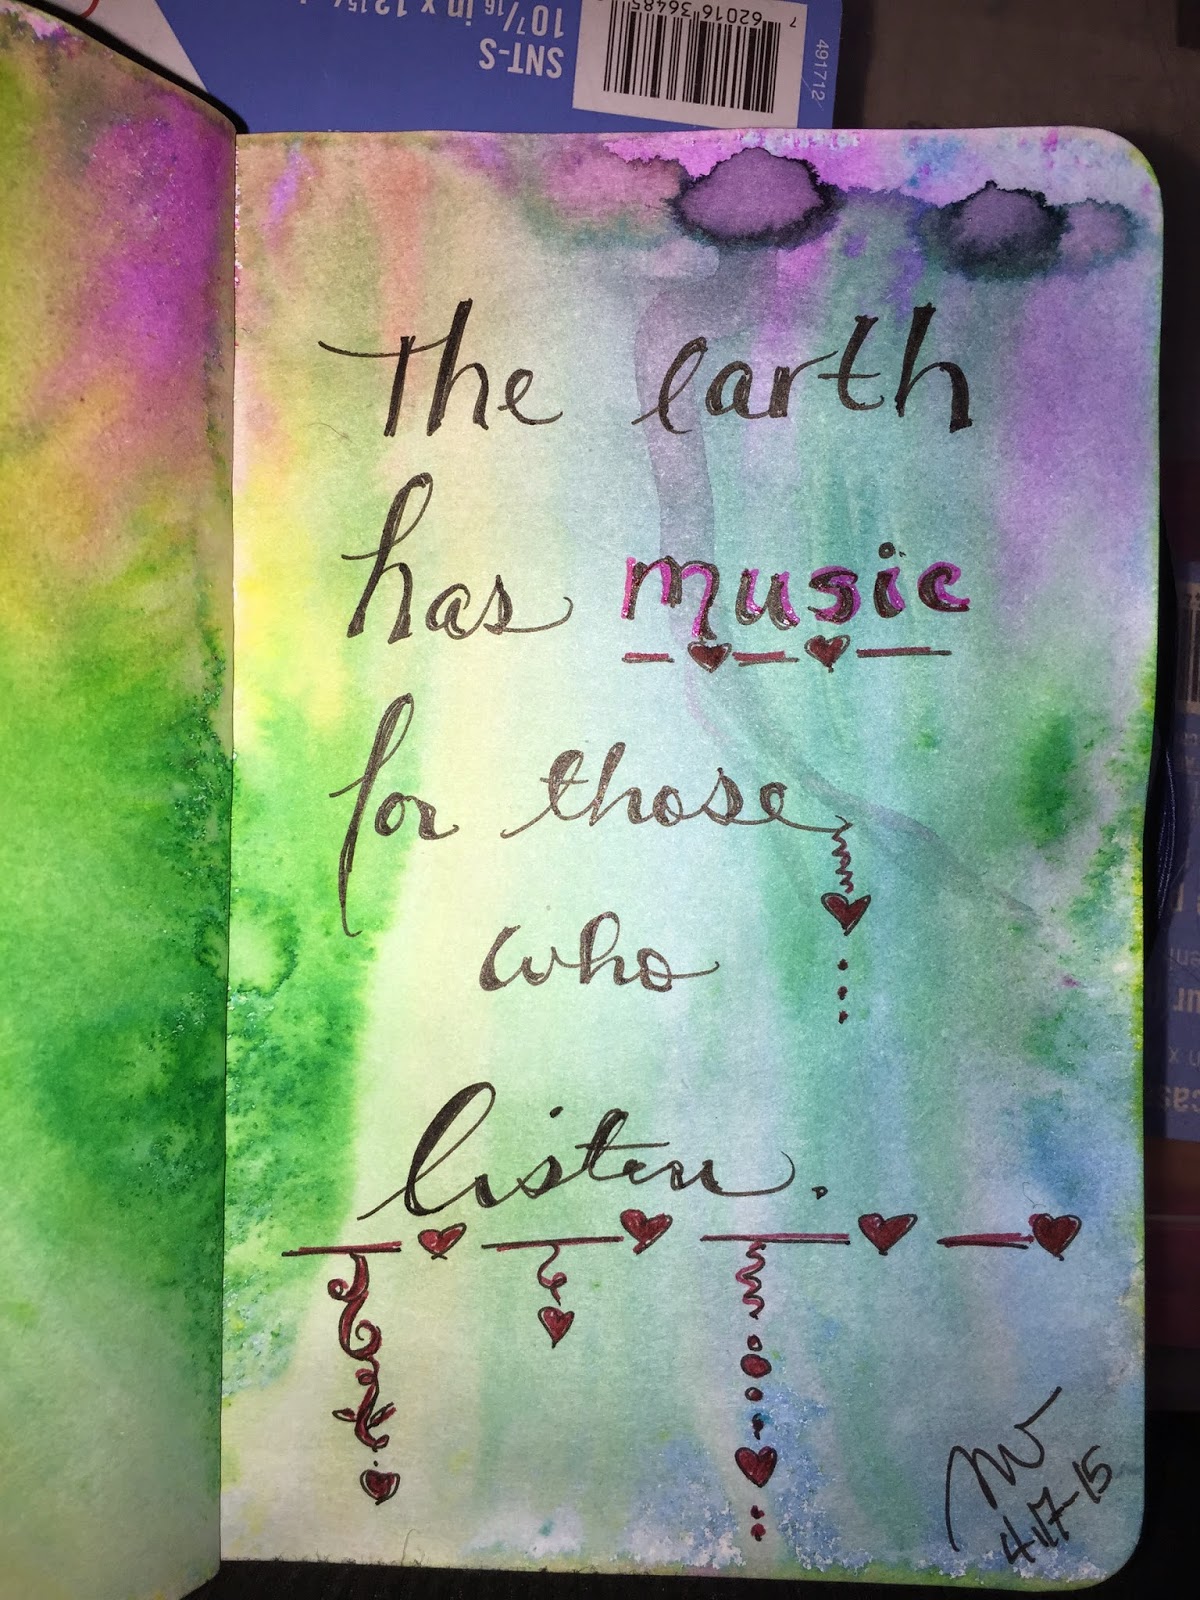 SNT-S
10 7/16 in x 12 15/
7 62016 36485
491712
The earth
has music
for those
who
listen.
4-17-15